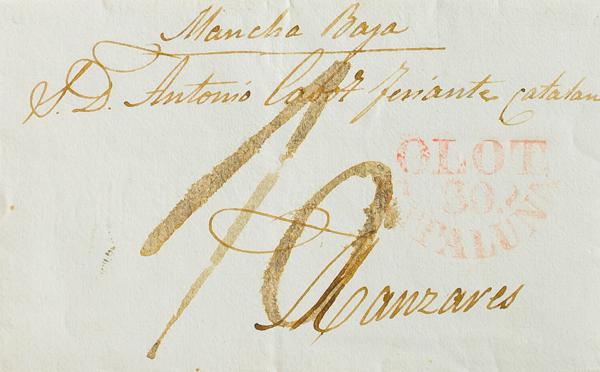 Mancha Baja
S. D. Antonio Cabot feriante catalan
10
OLOT
30
CATALUÑA
Manzares